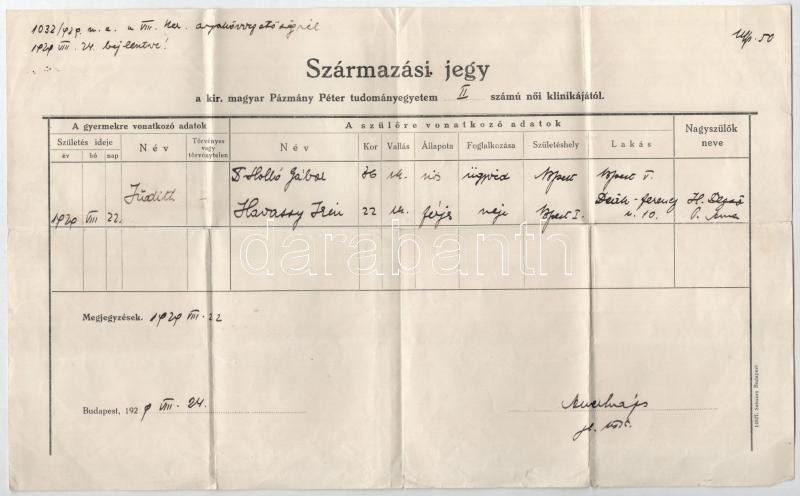 1032/929. u. a. a VIII. ker. anyakönyvvezetőségnél
1929 VIII. 24. bejelentve!
50
Származási jegy
a kir. magyar Pázmány Péter tudományegyetem II számú női klinikájától.
A gyermekre vonatkozó adatok
A szülőre vonatkozó adatok
Nagyszülők neve
Születés ideje
év hó nap
Név
Törvényes vagy törvénytelen
Név Kor Vallás Állapota Foglalkozása Születéshely Lakás
Dr Holló Gábor 36 nős ügyvéd Bpest Bpest V.
1929 VIII 22. Judith –
Havassy Irén 22 férjes neje Bpest I. Deák-ferenc u. 10. H. Dezső Anna
darabanth
Megjegyzések. 1929 VIII. 22
Budapest, 1929 VIII. 24.